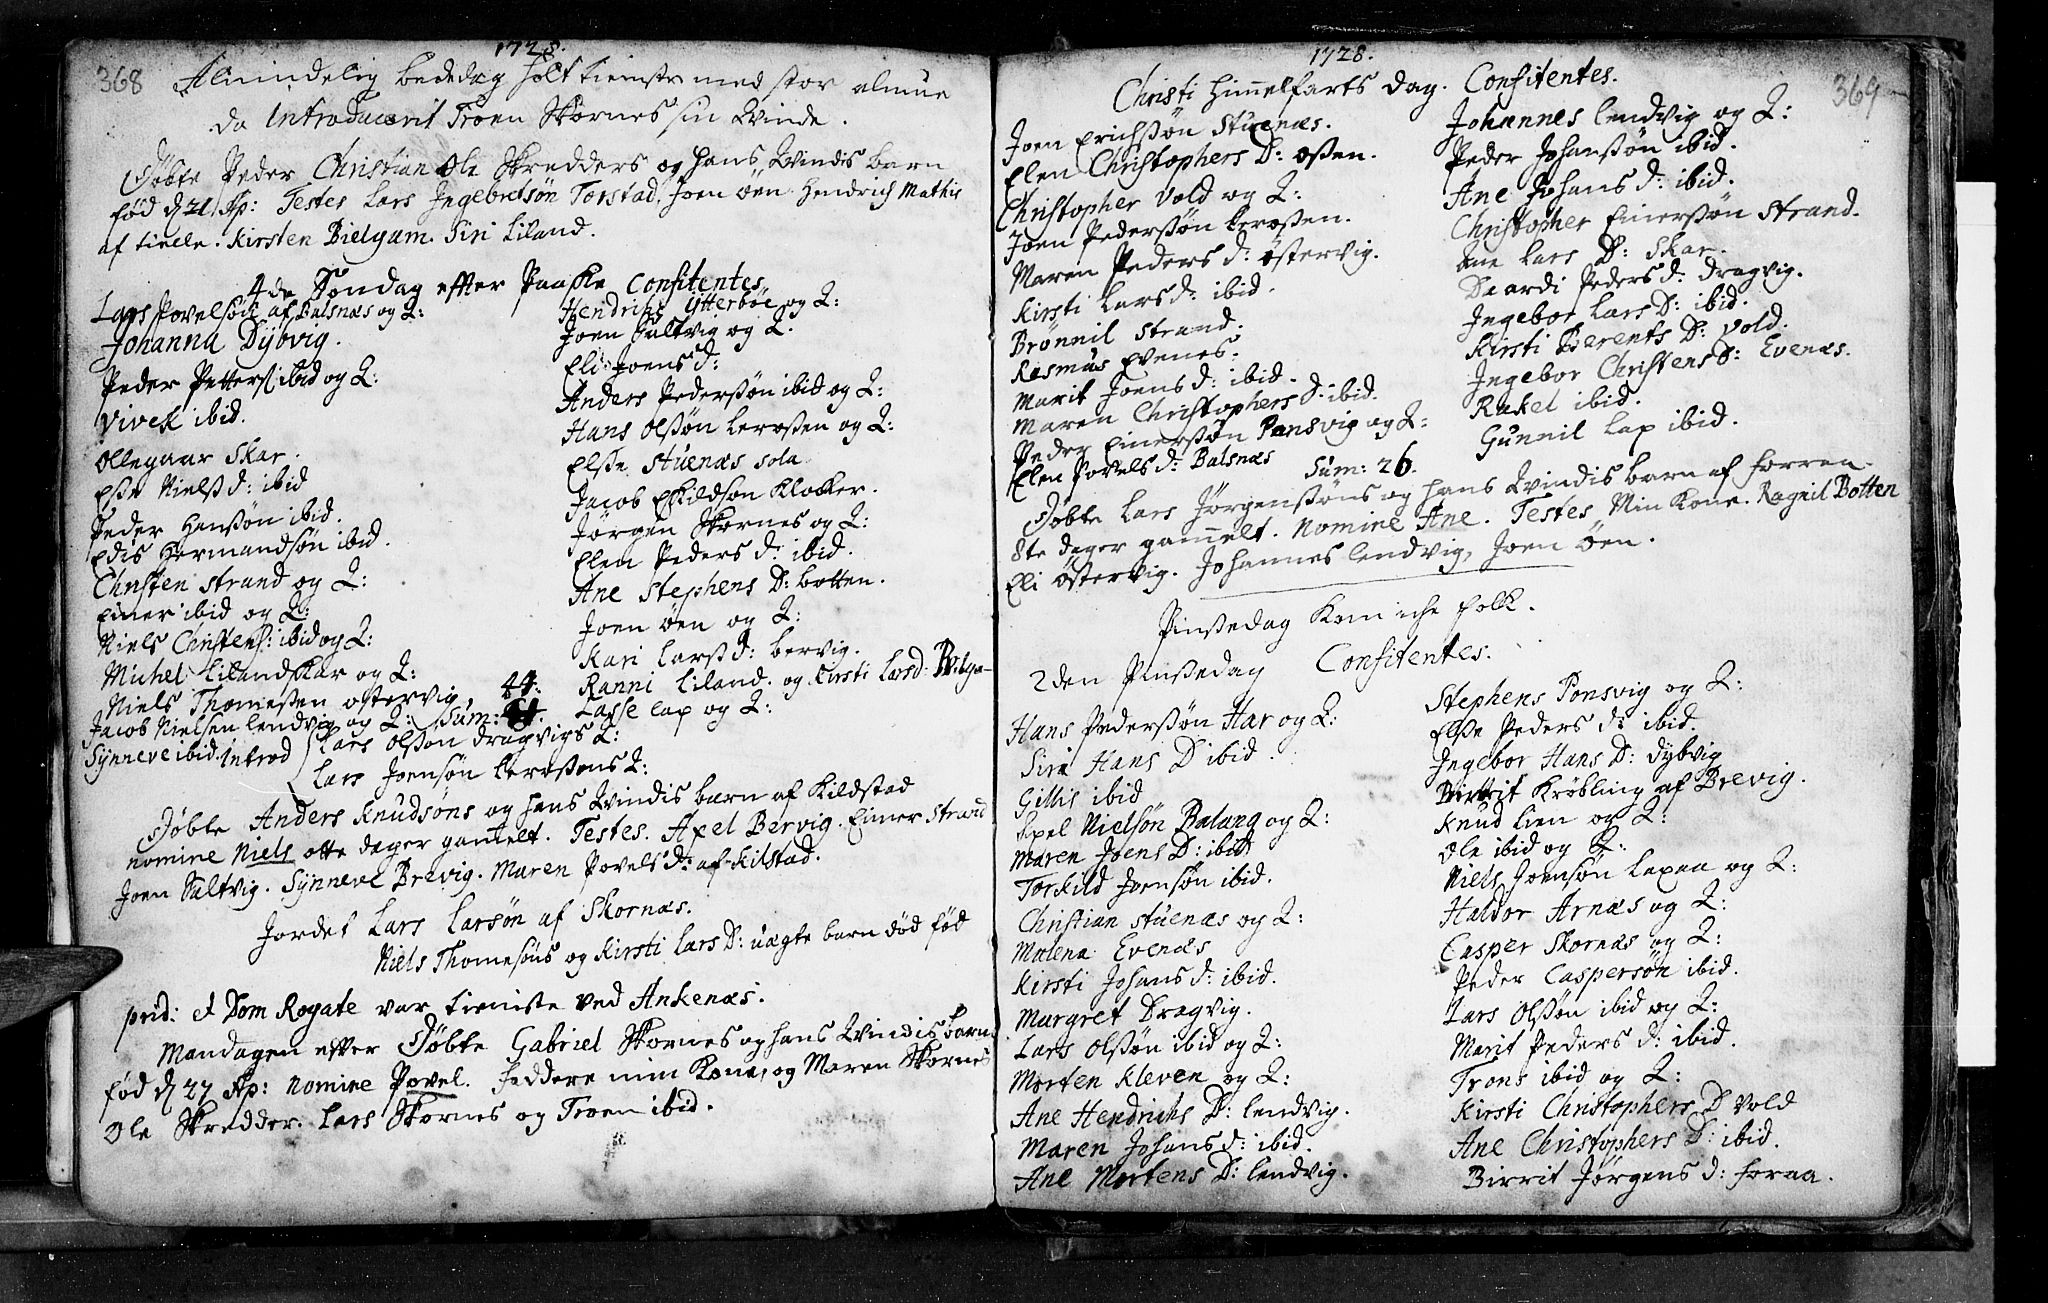 1728.
368 Almindelig bededag holt tieniste med stor almue
da Introducerit Troen Skornes sin Qvinde.
Døbte Peder Christian Ole Skredders og hans Qvindis barn
fød d 21 Ap: Testes Lars Ingebretsøn Torstad, Joen øen. Hendrich Mathis
af tielle. Kirsten Bielgam. Siri Liland.
4de Søndag effter Paaske Confitentes
Lars Povelsøn af Balsnæs og Q:
Johanna Dybvig.
Peder Petters: ibid og Q:
Vivek ibid.
Ollegaar Skar.
Else Niels d: ibid
Peder Hanssøn ibid.
Edis Hermandsøn ibid.
Christen Strand og Q:
Einer ibid og Q:
Niels Christens: ibid og Q:
Michel Liland Skar og Q:
Niels Thomesen østervig.
Jacob Nielsen lendvig og Q:
Synneve ibid. Introd
Hendrich Ytterbøe og Q:
Joen Saltvig og Q.
Eli Joens d:
Anders Pederssøn ibid og Q:
Hans Olssøn Lerossen og Q:
Else Stuenæs sola
Jacob Eskildsøn Klokker.
Jørgen Skornes og Q:
Elen Peders d: ibid.
Ane Stephens D: botten.
Joen øen og Q:
Kari Lars d: bervig.
Ranni Liland. og Kirsti Lars d:
Lasse lap og Q:
Sum: 44.
Lars Olssøn dragvigs Q:
Lars Joensøn Lerossens Q:
Døbte Anders Knudsøns og hans Qvindis barn af Kildstad
nomine Niels otte dager gamelt. Testes. Axel Bervig. Einer Strand
Joen Saltvig. Synneve Brevig. Maren Povels d: af Kilstad.
Jordet Lars Larsøn af Skornæs.
Niels Thomesøns og Kirsti Lars D: uægte barn død fød
prid: et Dom Rogate var tieniste ved Ankenæs.
Mandagen effter Døbte Gabriel Skornes og hans Qvindis barn
fød d 27 Ap: nomine Povel. Faddere min Kone, og Maren Skornes
Ole Skredder. Lars Skornes og Troen ibid.
1728.
369
Christi Himmelfarts dag. Confitentes.
Joen Erichssøn Stuenæs.
Elen Christophers D: ossen.
Christopher Vold og Q:
Joen Pederssøn Lerossen.
Maren Peders d: østervig.
Kirsti Lars d: ibid.
Brønnil Strand.
Rasmus Evenes.
Marit Joens d: ibid.
Maren Christophers d: ibid.
Peder Einerssøn Ponsvig og Q:
Elen Povels d: Balsnæs
Johannes lendvig og Q:
Peder Johanssøn ibid.
Ane Johans d: ibid.
Christopher Einerssøn Strand.
Ane Lars D: Skar.
Daardi Peders d: dragvig.
Ingebor Lars D: ibid.
Kirsti Berents D: Vold.
Ingebor Christens D: Evenæs.
Rakel ibid.
Gunnil Lap ibid.
Sum: 26.
Døbte Lars Jørgenssøns og hans Qvindis barn af forraa
8te dager gammelt. Nomine Ane. Testes Min Kone. Ragnil Botten
Eli østervig. Johannes lendvig, Joen øen.
Pinssedag Kom iche folk.
2den Pinssedag Confitentes.
Hans Pederssøn Har og Q:
Siri Hans D ibid.
Gillis ibid
Axel Nielsøn Balang og Q:
Maren Joens D: ibid
Torkild Joensøn ibid.
Christian Stuenæs og Q:
Malena Evenæs
Kirsti Johans d: ibid.
Margret Dragvig.
Lars Olssøn ibid og Q:
Morten Kleven og Q:
Ane Hendrichs D: lendvig.
Maren Johans d: ibid.
Ane Mortens D: lendvig.
Stephens Ponsvig og Q:
Else Peders d: ibid.
Ingebor Hans D: dybvig
Birrit Krøbling af Brevig.
Knud Lien og Q:
Ole ibid og Q:
Niels Joensøn Laxaa og Q:
Haldor Arnæs og Q:
Casper Skornæs og Q:
Peder Caspersøn ibid.
Lars Olssøn ibid og Q:
Marit Peders d: ibid.
Trons ibid og Q:
Kirsti Christophers D Vold
Ane Christophers D: ibid.
Birrit Jørgens d: foraa.